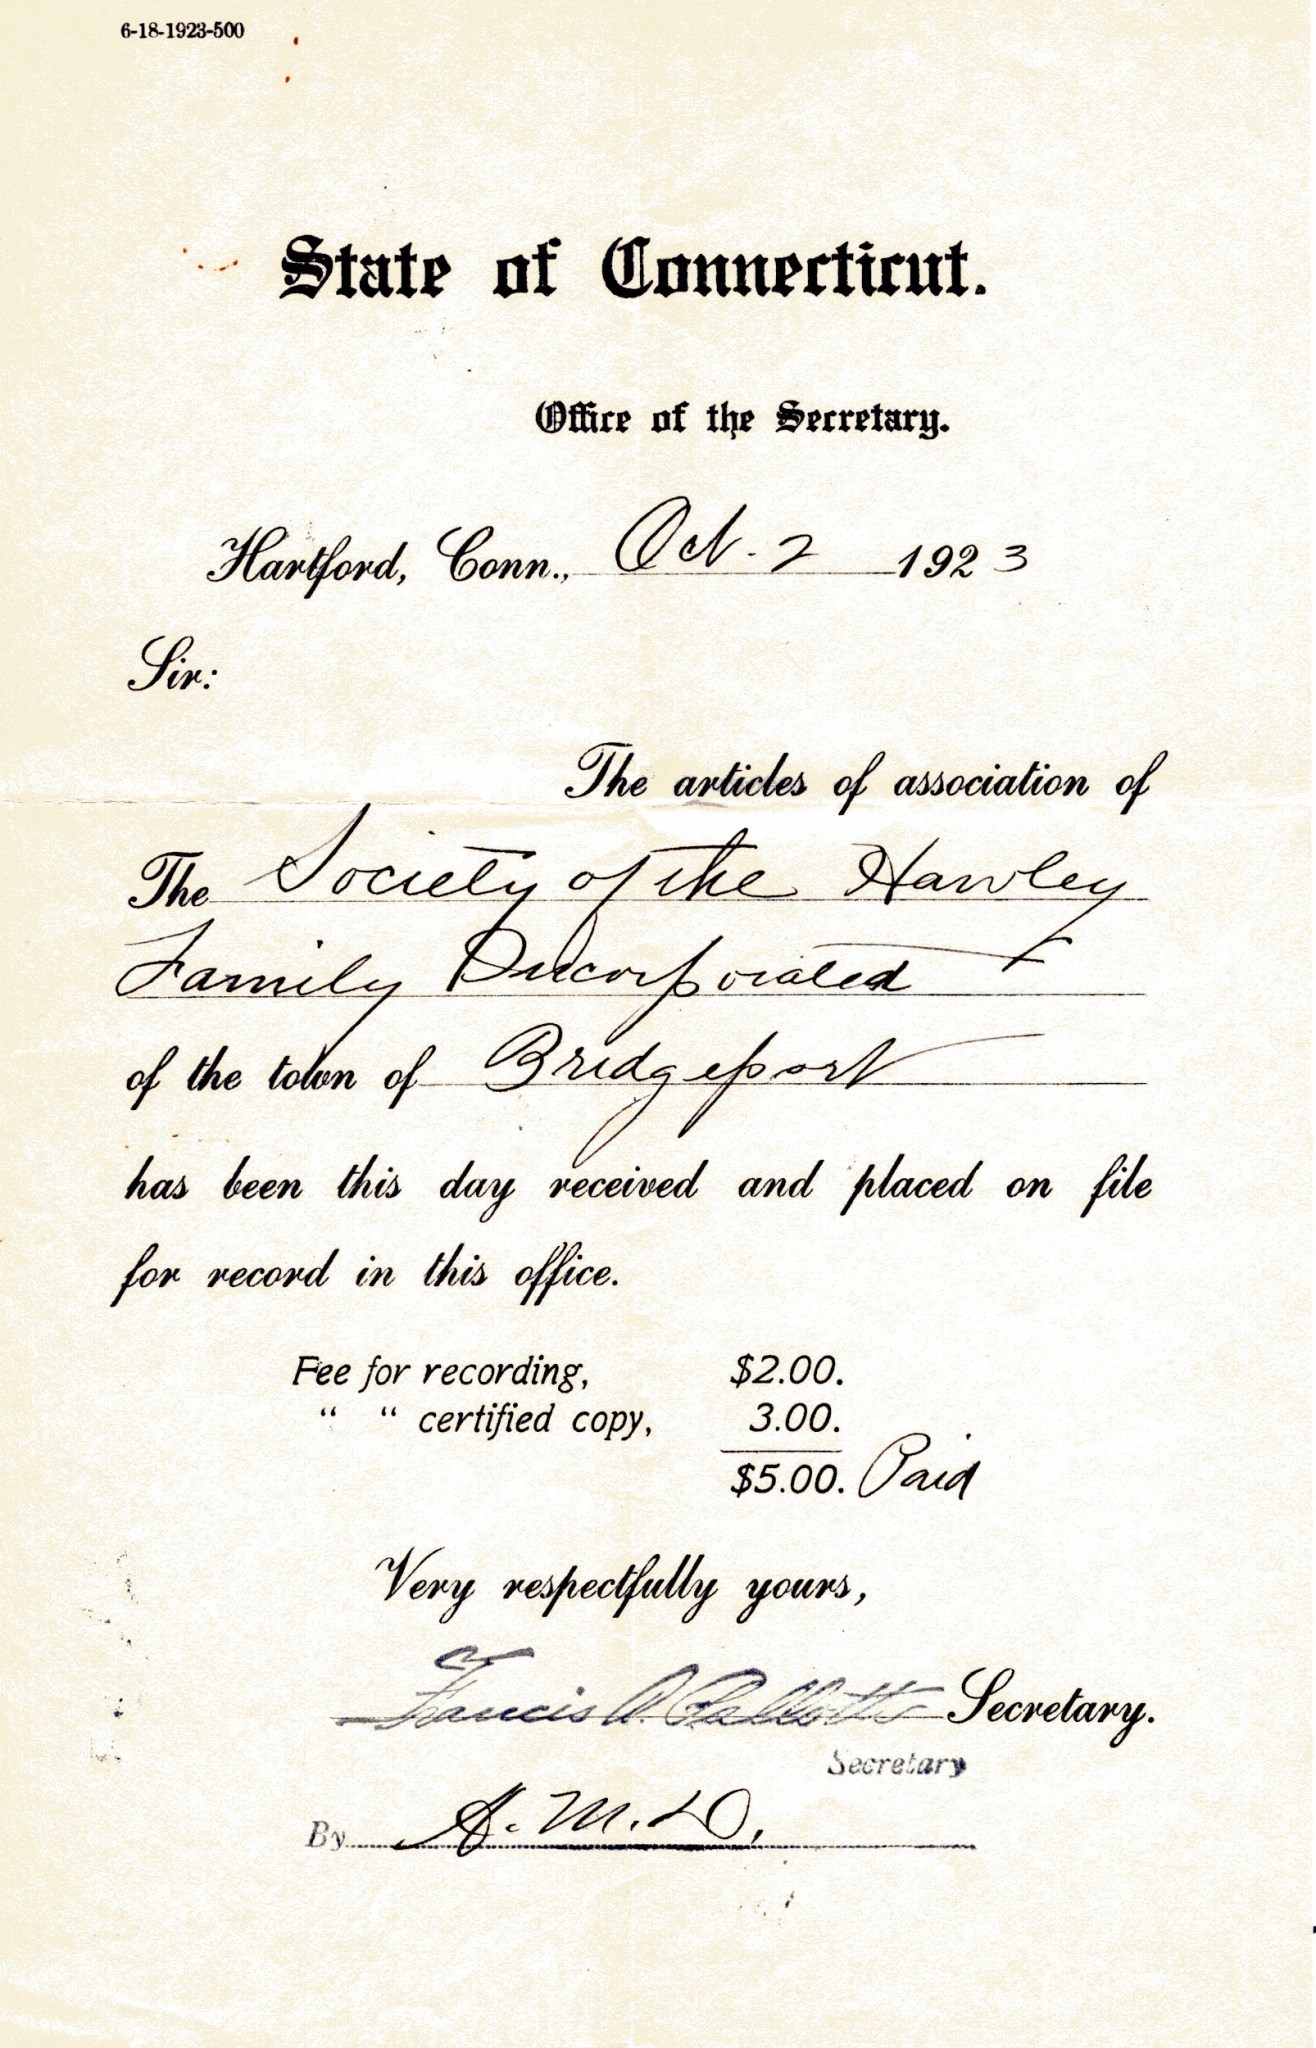 6-18-1923-500
State of Connecticut.
Office of the Secretary.
Hartford, Conn., Oct. 2 1923
Sir:
The articles of association of
The Society of the Hawley
Family Incorporated
of the town of Bridgeport
has been this day received and placed on file
for record in this office.
Fee for recording, $2.00.
“ “ certified copy, 3.00.
$5.00. Paid
Very respectfully yours,
Francis A. Pallotti Secretary.
Secretary
By A. M. D.